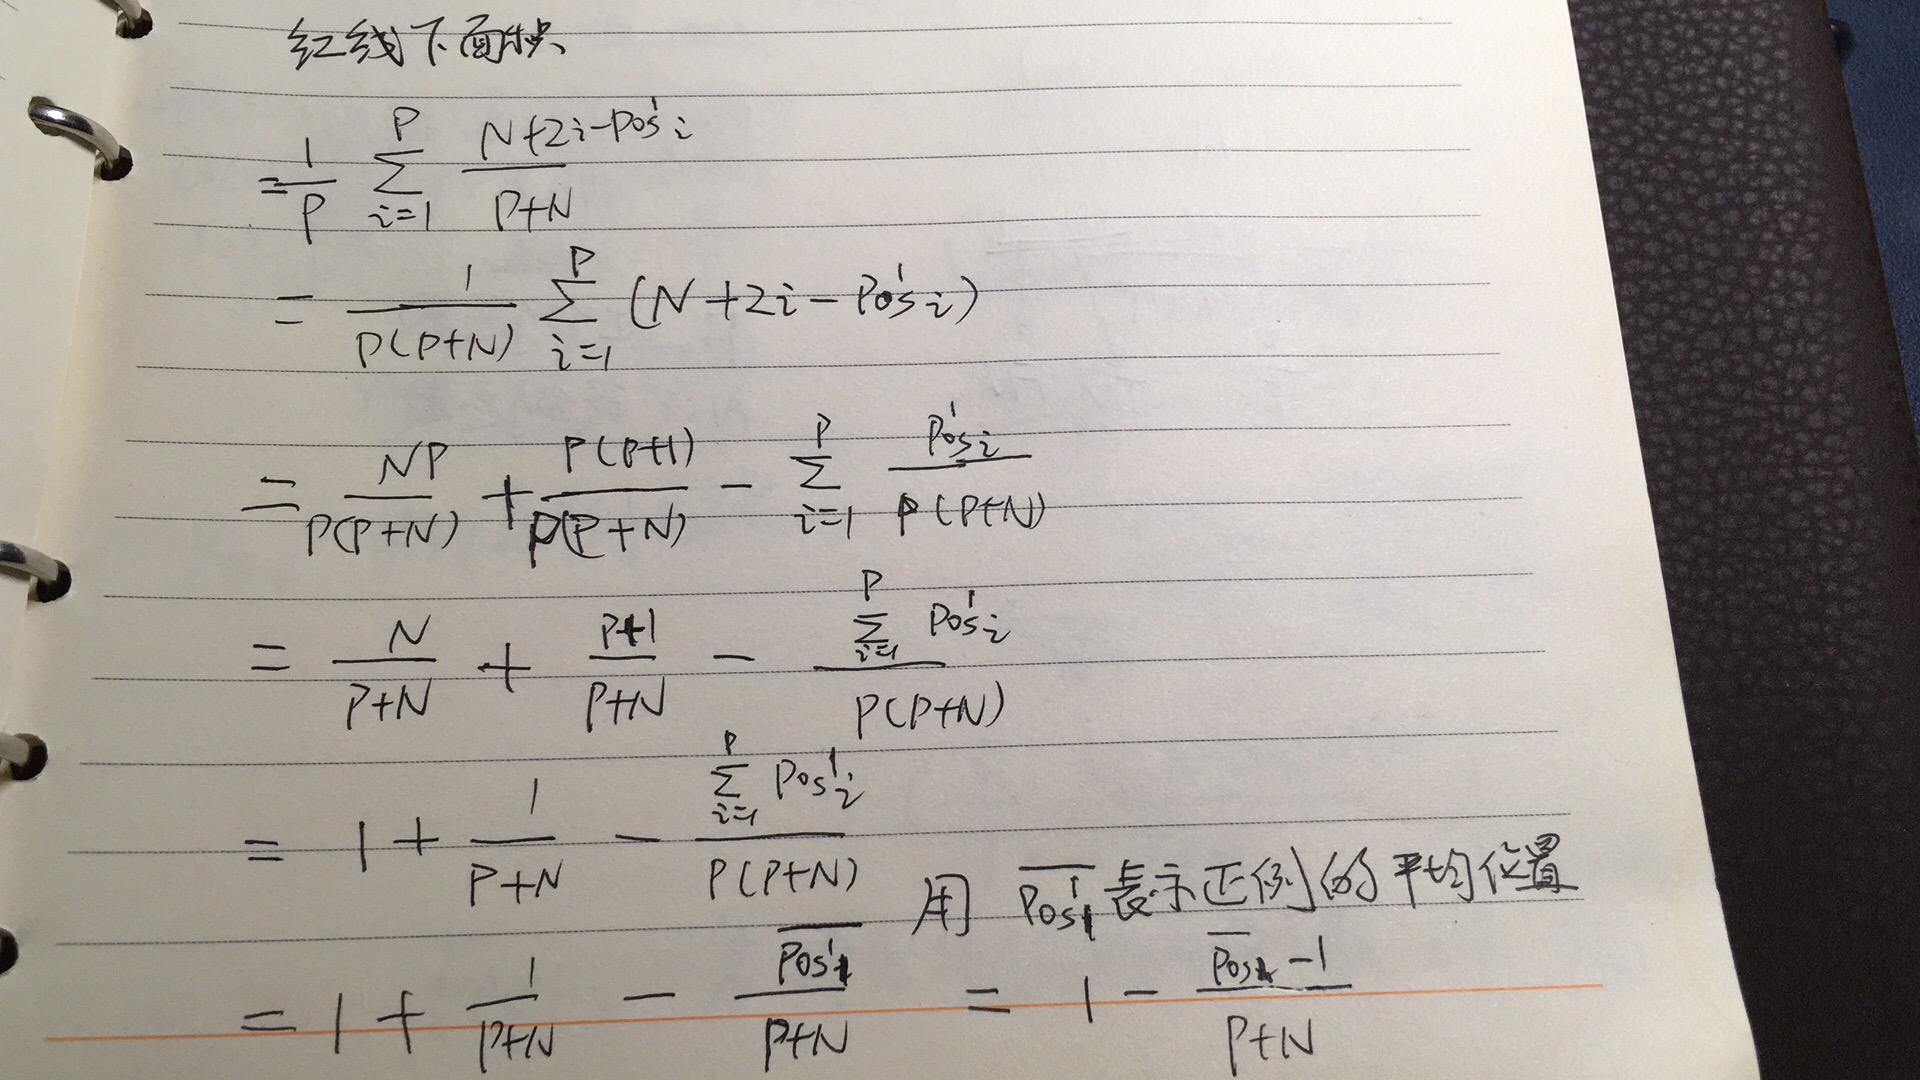 红线下面积
= \frac{1}{P} \sum_{i=1}^{P} \frac{N+2i-Pos^1_i}{P+N}
= \frac{1}{P(P+N)} \sum_{i=1}^{P} (N+2i-Pos^1_i)
= \frac{NP}{P(P+N)} + \frac{P(P+1)}{P(P+N)} - \sum_{i=1}^{P} \frac{Pos^1_i}{P(P+N)}
= \frac{N}{P+N} + \frac{P+1}{P+N} - \frac{\sum_{i=1}^{P} Pos^1_i}{P(P+N)}
= 1 + \frac{1}{P+N} - \frac{\sum_{i=1}^{P} Pos^1_i}{P(P+N)}
用 \overline{Pos^1} 表示正例的平均位置
= 1 + \frac{1}{P+N} - \frac{\overline{Pos^1}}{P+N} = 1 - \frac{\overline{Pos}-1}{P+N}